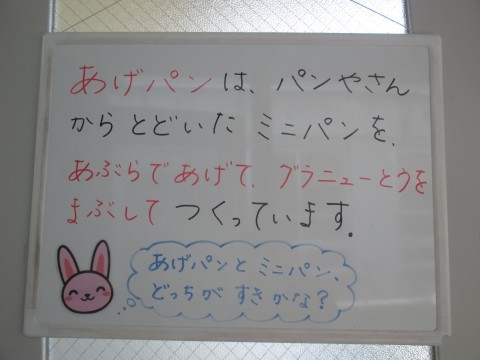 あげパンは、パンやさん
から とどいた ミニパンを、
あぶらであげて、グラニューとうを
まぶして つくっています。
あげパンと ミニパン、
どっちが すきかな?